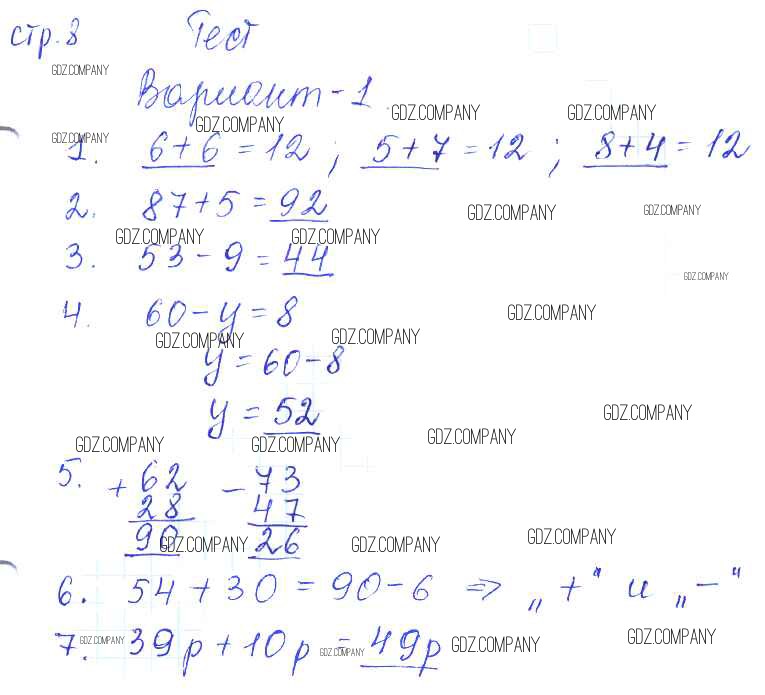 стр. 8 Тест
GDZ.COMPANY
Вариант - 1
GDZ.COMPANY GDZ.COMPANY
GDZ.COMPANY GDZ.COMPANY
1. 6 + 6 = 12 ; 5 + 7 = 12 ; 8 + 4 = 12
2. 87 + 5 = 92
GDZ.COMPANY GDZ.COMPANY
GDZ.COMPANY GDZ.COMPANY
3. 53 - 9 = 44
GDZ.COMPANY
4. 60 - у = 8
GDZ.COMPANY
GDZ.COMPANY GDZ.COMPANY
у = 60 - 8
у = 52
GDZ.COMPANY
GDZ.COMPANY GDZ.COMPANY GDZ.COMPANY
5. + 62 - 73
28 47
90 26
GDZ.COMPANY GDZ.COMPANY GDZ.COMPANY
6. 54 + 30 = 90 - 6 => „ + “ и „ - “
7. 39 р + 10 р = 49 р
GDZ.COMPANY GDZ.COMPANY GDZ.COMPANY GDZ.COMPANY